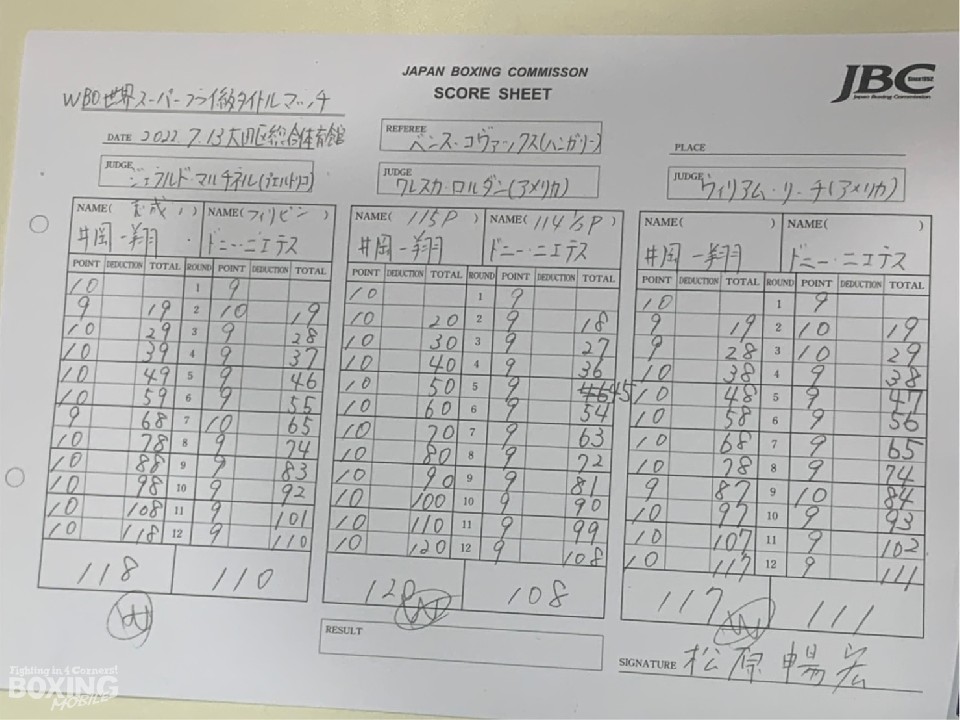 JAPAN BOXING COMMISSON
SCORE SHEET
JBC
Since1952
Japan Boxing Commission
WBO世界スーパーフライ級タイトルマッチ
DATE 2022.7.13 大田区総合体育館
REFEREE ベンス・コヴァックス(ハンガリー)
PLACE
JUDGE ジェラルド・マルチネル(プエルトリコ)
JUDGE ワレスカ・ロルダン(アメリカ)
JUDGE ウィリアム・リーチ(アメリカ)
NAME( ) NAME(フィリピン) NAME( 115P ) NAME( 114 1/2P ) NAME( ) NAME( )
井岡一翔 ドニー・ニエテス 井岡一翔 ドニー・ニエテス 井岡一翔 ドニー・ニエテス
POINT DEDUCTION TOTAL ROUND POINT DEDUCTION TOTAL POINT DEDUCTION TOTAL ROUND POINT DEDUCTION TOTAL POINT DEDUCTION TOTAL ROUND POINT DEDUCTION TOTAL
10 1 9 10 1 9 10 1 9
9 19 2 10 19 10 20 2 9 18 9 19 2 10 19
10 29 3 9 28 10 30 3 9 27 9 28 3 10 29
10 39 4 9 37 10 40 4 9 36 10 38 4 9 38
10 49 5 9 46 10 50 5 9 46 45 10 48 5 9 47
10 59 6 9 55 10 60 6 9 54 10 58 6 9 56
9 68 7 10 65 10 70 7 9 63 10 68 7 9 65
10 78 8 9 74 10 80 8 9 72 10 78 8 9 74
10 88 9 9 83 10 90 9 9 81 9 87 9 10 84
10 98 10 9 92 10 100 10 9 90 10 97 10 9 93
10 108 11 9 101 10 110 11 9 99 10 107 11 9 102
10 118 12 9 110 10 120 12 9 108 10 117 12 9 111
118 110 120 108 117 111
W W W
RESULT
SIGNATURE 松原暢宏
Fighting in 4 Corners!
BOXING
MOBILE